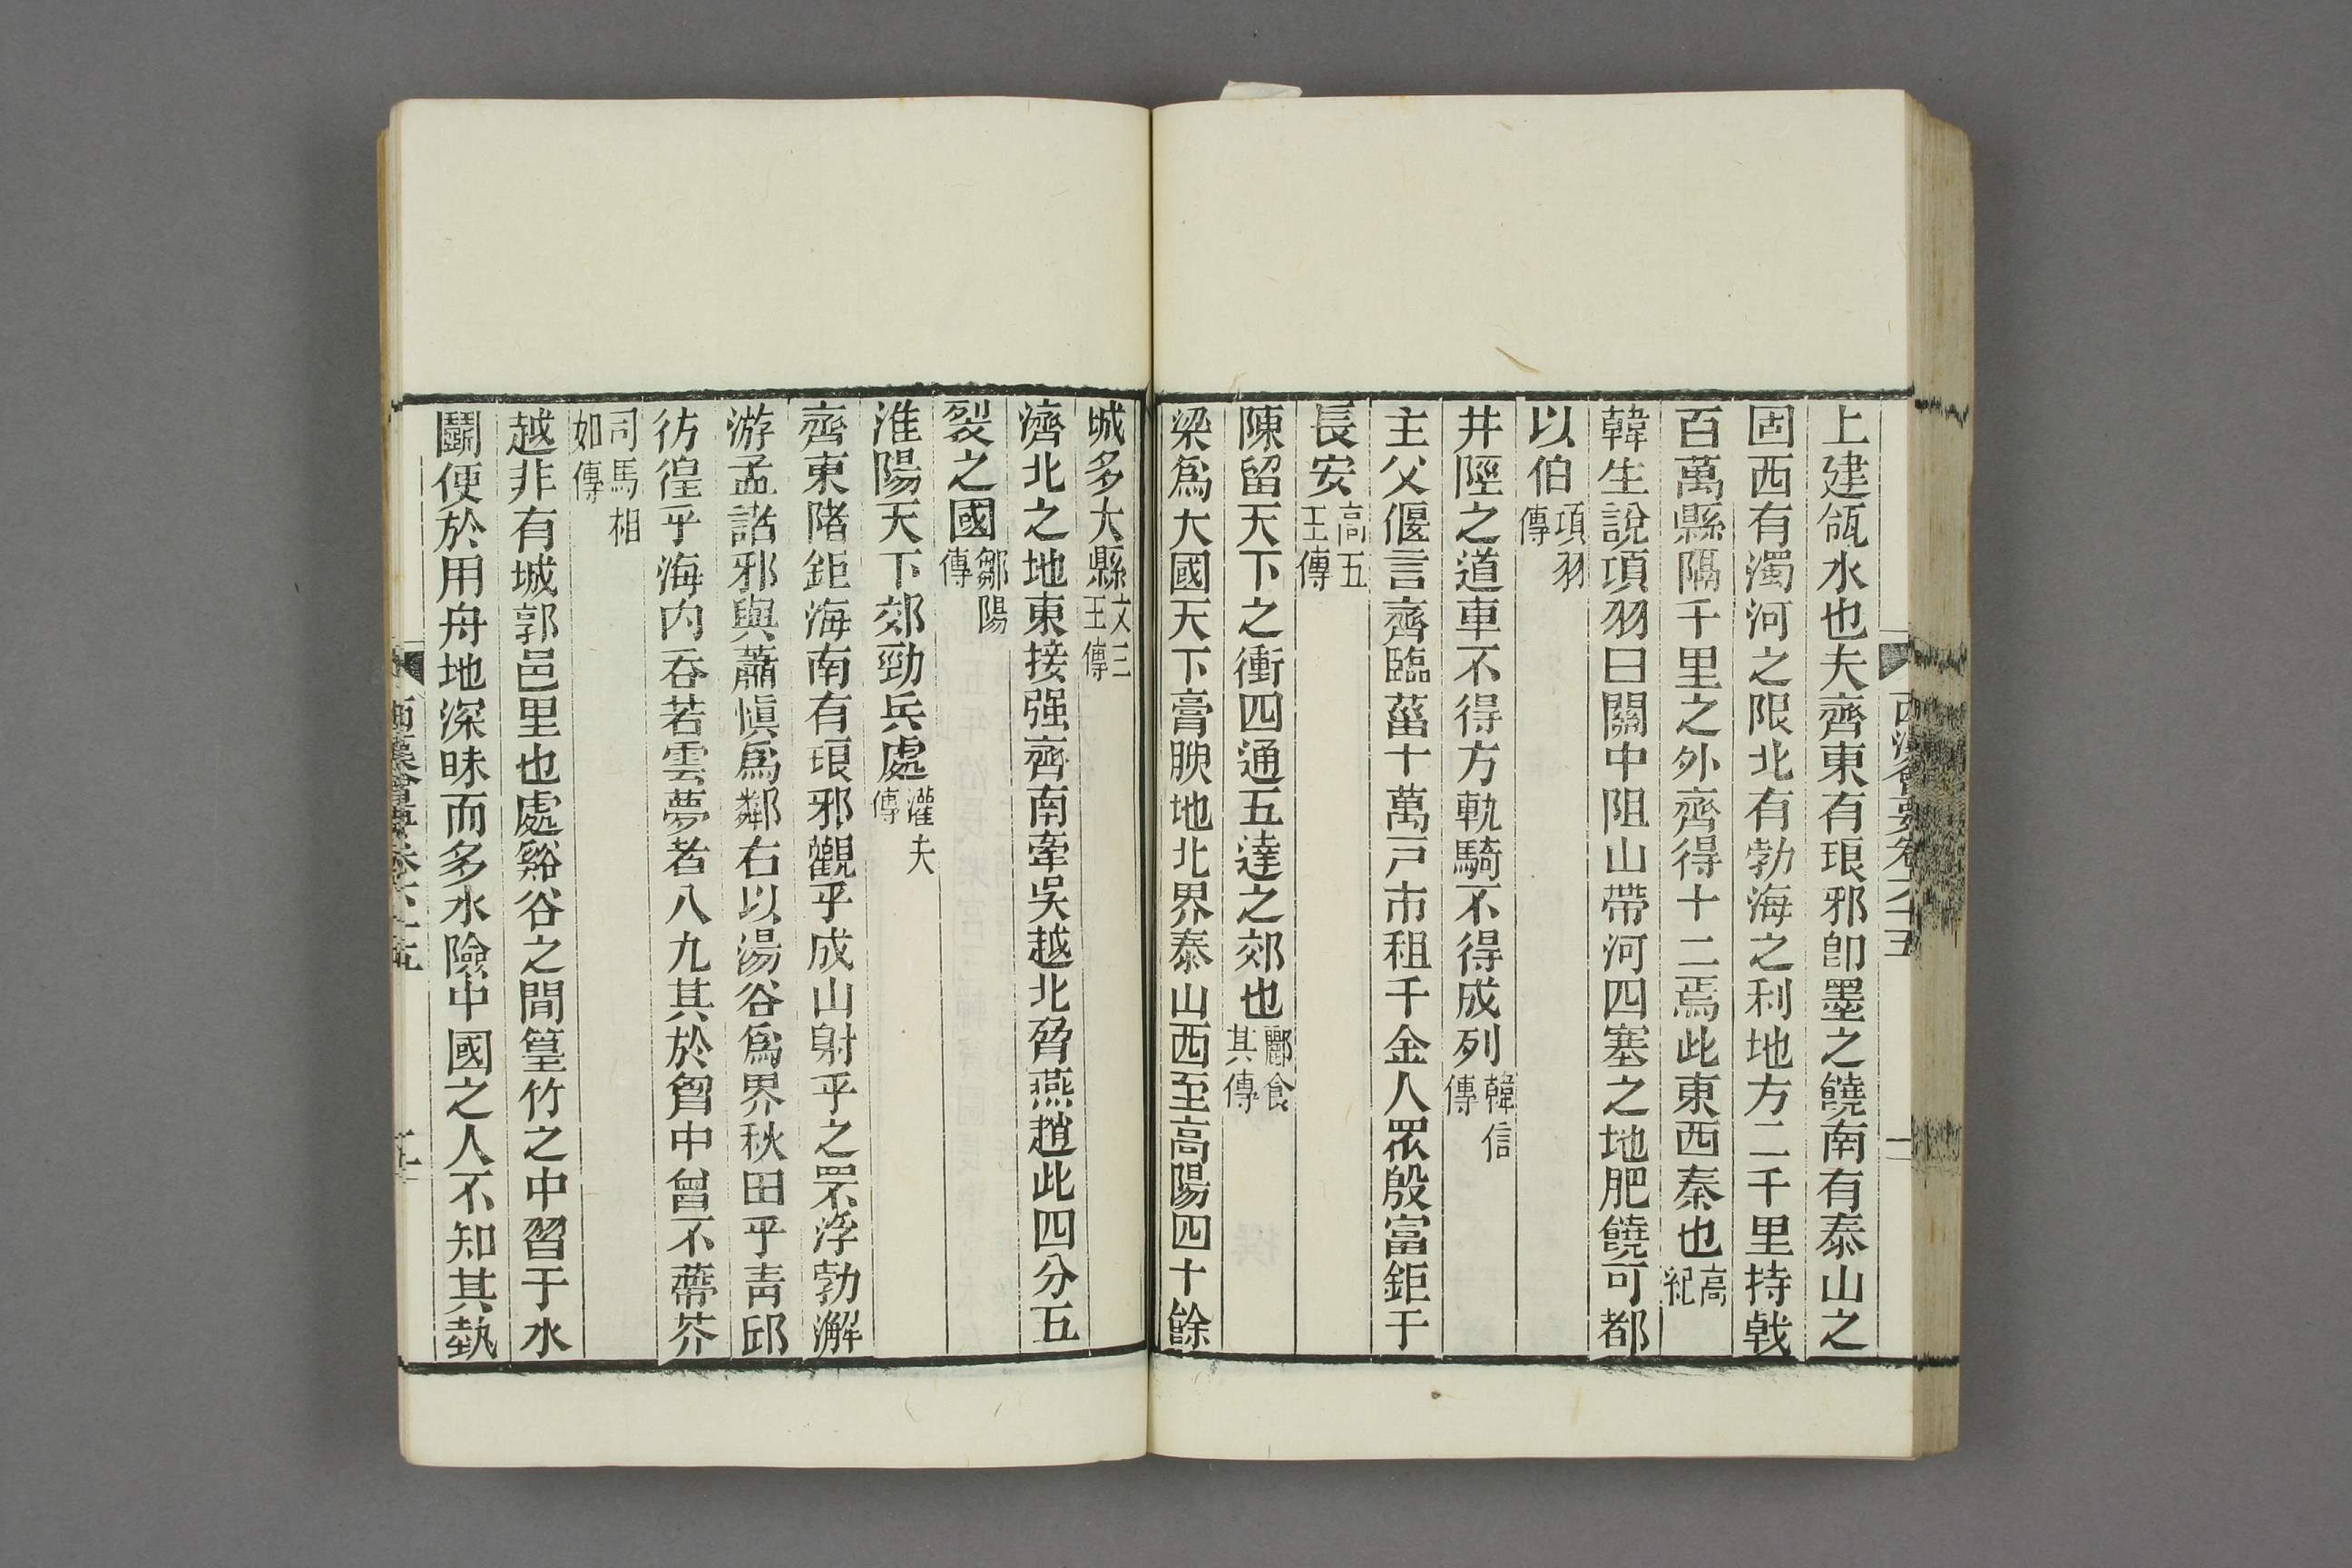 上建瓴水也夫齊東有琅邪卽墨之饒南有泰山之
固西有濁河之限北有勃海之利地方二千里持戟
百萬縣隔千里之外齊得十二焉此東西秦也高紀
韓生說項羽曰關中阻山帶河四塞之地肥饒可都
以伯項羽傳
井陘之道車不得方軌騎不得成列韓信傳
主父偃言齊臨菑十萬戸市租千金人眾殷富鉅于
長安高五王傳
陳留天下之衝四通五達之郊也酈食其傳
梁爲大國天下膏腴地北界泰山西至高陽四十餘
城多大縣文三王傳
濟北之地東接强齊南牽吳越北脅燕趙此四分五
裂之國鄒陽傳
淮陽天下郊勁兵處灌夫傳
齊東陼鉅海南有琅邪觀乎成山射乎之罘浮勃澥
游孟諸邪與肅愼爲鄰右以湯谷爲界秋田乎青邱
彷徨乎海内吞若雲夢者八九其於胷中曾不蔕芥
司馬相如傳
越非有城郭邑里也處谿谷之間篁竹之中習于水
鬭便於用舟地深昧而多水險中國之人不知其埶
西漢會要卷六十五